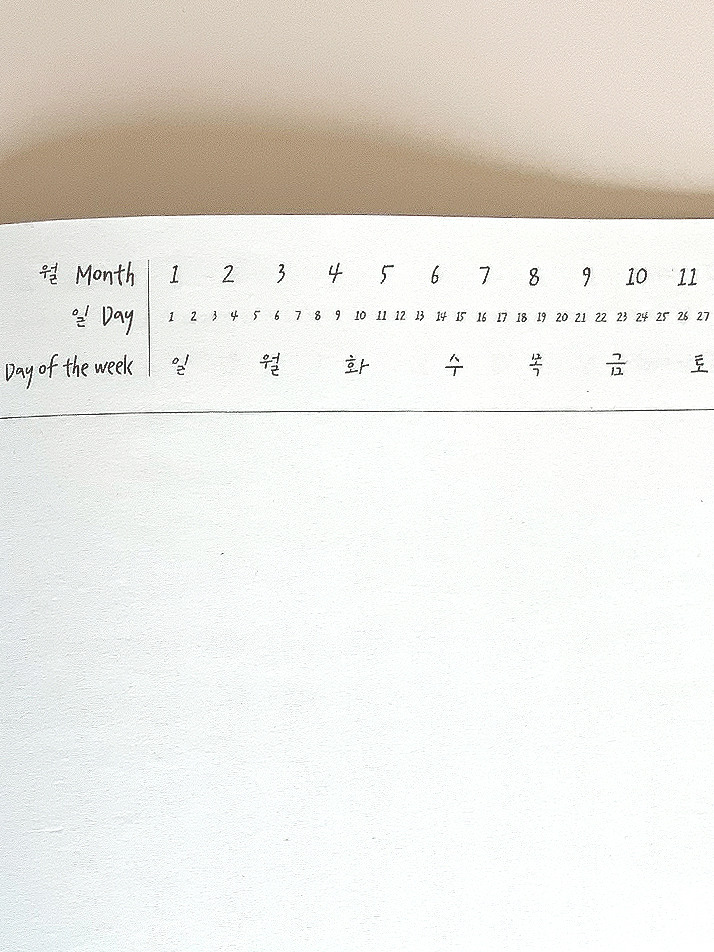 월 Month 1 2 3 4 5 6 7 8 9 10 11
일 Day 1 2 3 4 5 6 7 8 9 10 11 12 13 14 15 16 17 18 19 20 21 22 23 24 25 26 27
Day of the week 일 월 화 수 목 금 토